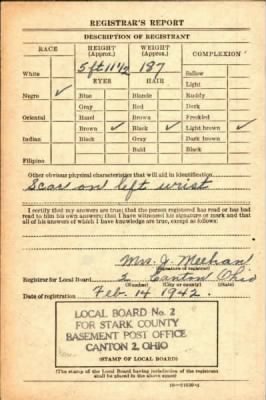 REGISTRAR'S REPORT
DESCRIPTION OF REGISTRANT
RACE HEIGHT (Approx.) WEIGHT (Approx.) COMPLEXION
5 ft 11 1/2 187
White Sallow
EYES HAIR Light
Negro ✓ Blue Blonde Ruddy
Gray Red Dark
Oriental Hazel Black Freckled
Brown ✓ Brown ✓ Light brown ✓
Indian Black Gray Dark brown
Bald Black
Filipino
Other obvious physical characteristics that will aid in identification
Scar on left wrist
I certify that my answers are true; that the person registered has read or has had
read to him his own answers; that I have witnessed his signature or mark and that
all of his answers of which I have knowledge are true, except as follows:
Mrs. J. Meehan
(Signature of registrar)
Registrar for Local Board 2 Canton Ohio
(Number) (City or county) (State)
Date of registration Feb. 14 1942.
LOCAL BOARD No. 2
FOR STARK COUNTY
BASEMENT POST OFFICE
CANTON 2, OHIO
(STAMP OF LOCAL BOARD)
(The stamp of the Local Board having jurisdiction of the registrant
shall be placed in the above space.)